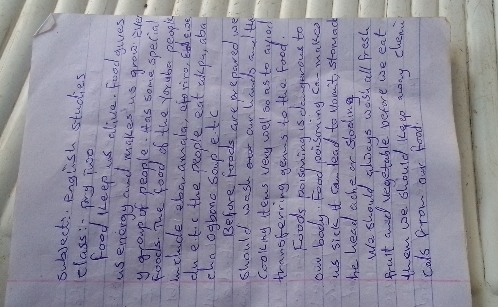 Subject:- English Studies
Class:- Pry two
Food keep us alive food gives
us energy and makes us grow Eve
y group of people. Has some special
foods. The food of the Yoruba people
include eba, amala,
etc the people eat akpa, aba
cha Ogbono soup etc
Before foods are prepared we
should wash our hands and the
cooking items very well so as to avoid
transferring germs to the food.
Foods poisoning is dangerous to
our body Food poisoning Ca- makes
us sick it can lead to Vomit, Stomach
he head ache or stooling
We should always wash all fresh
fruit and vegetable before we eat
them we should keep away chemi
cals from our food.